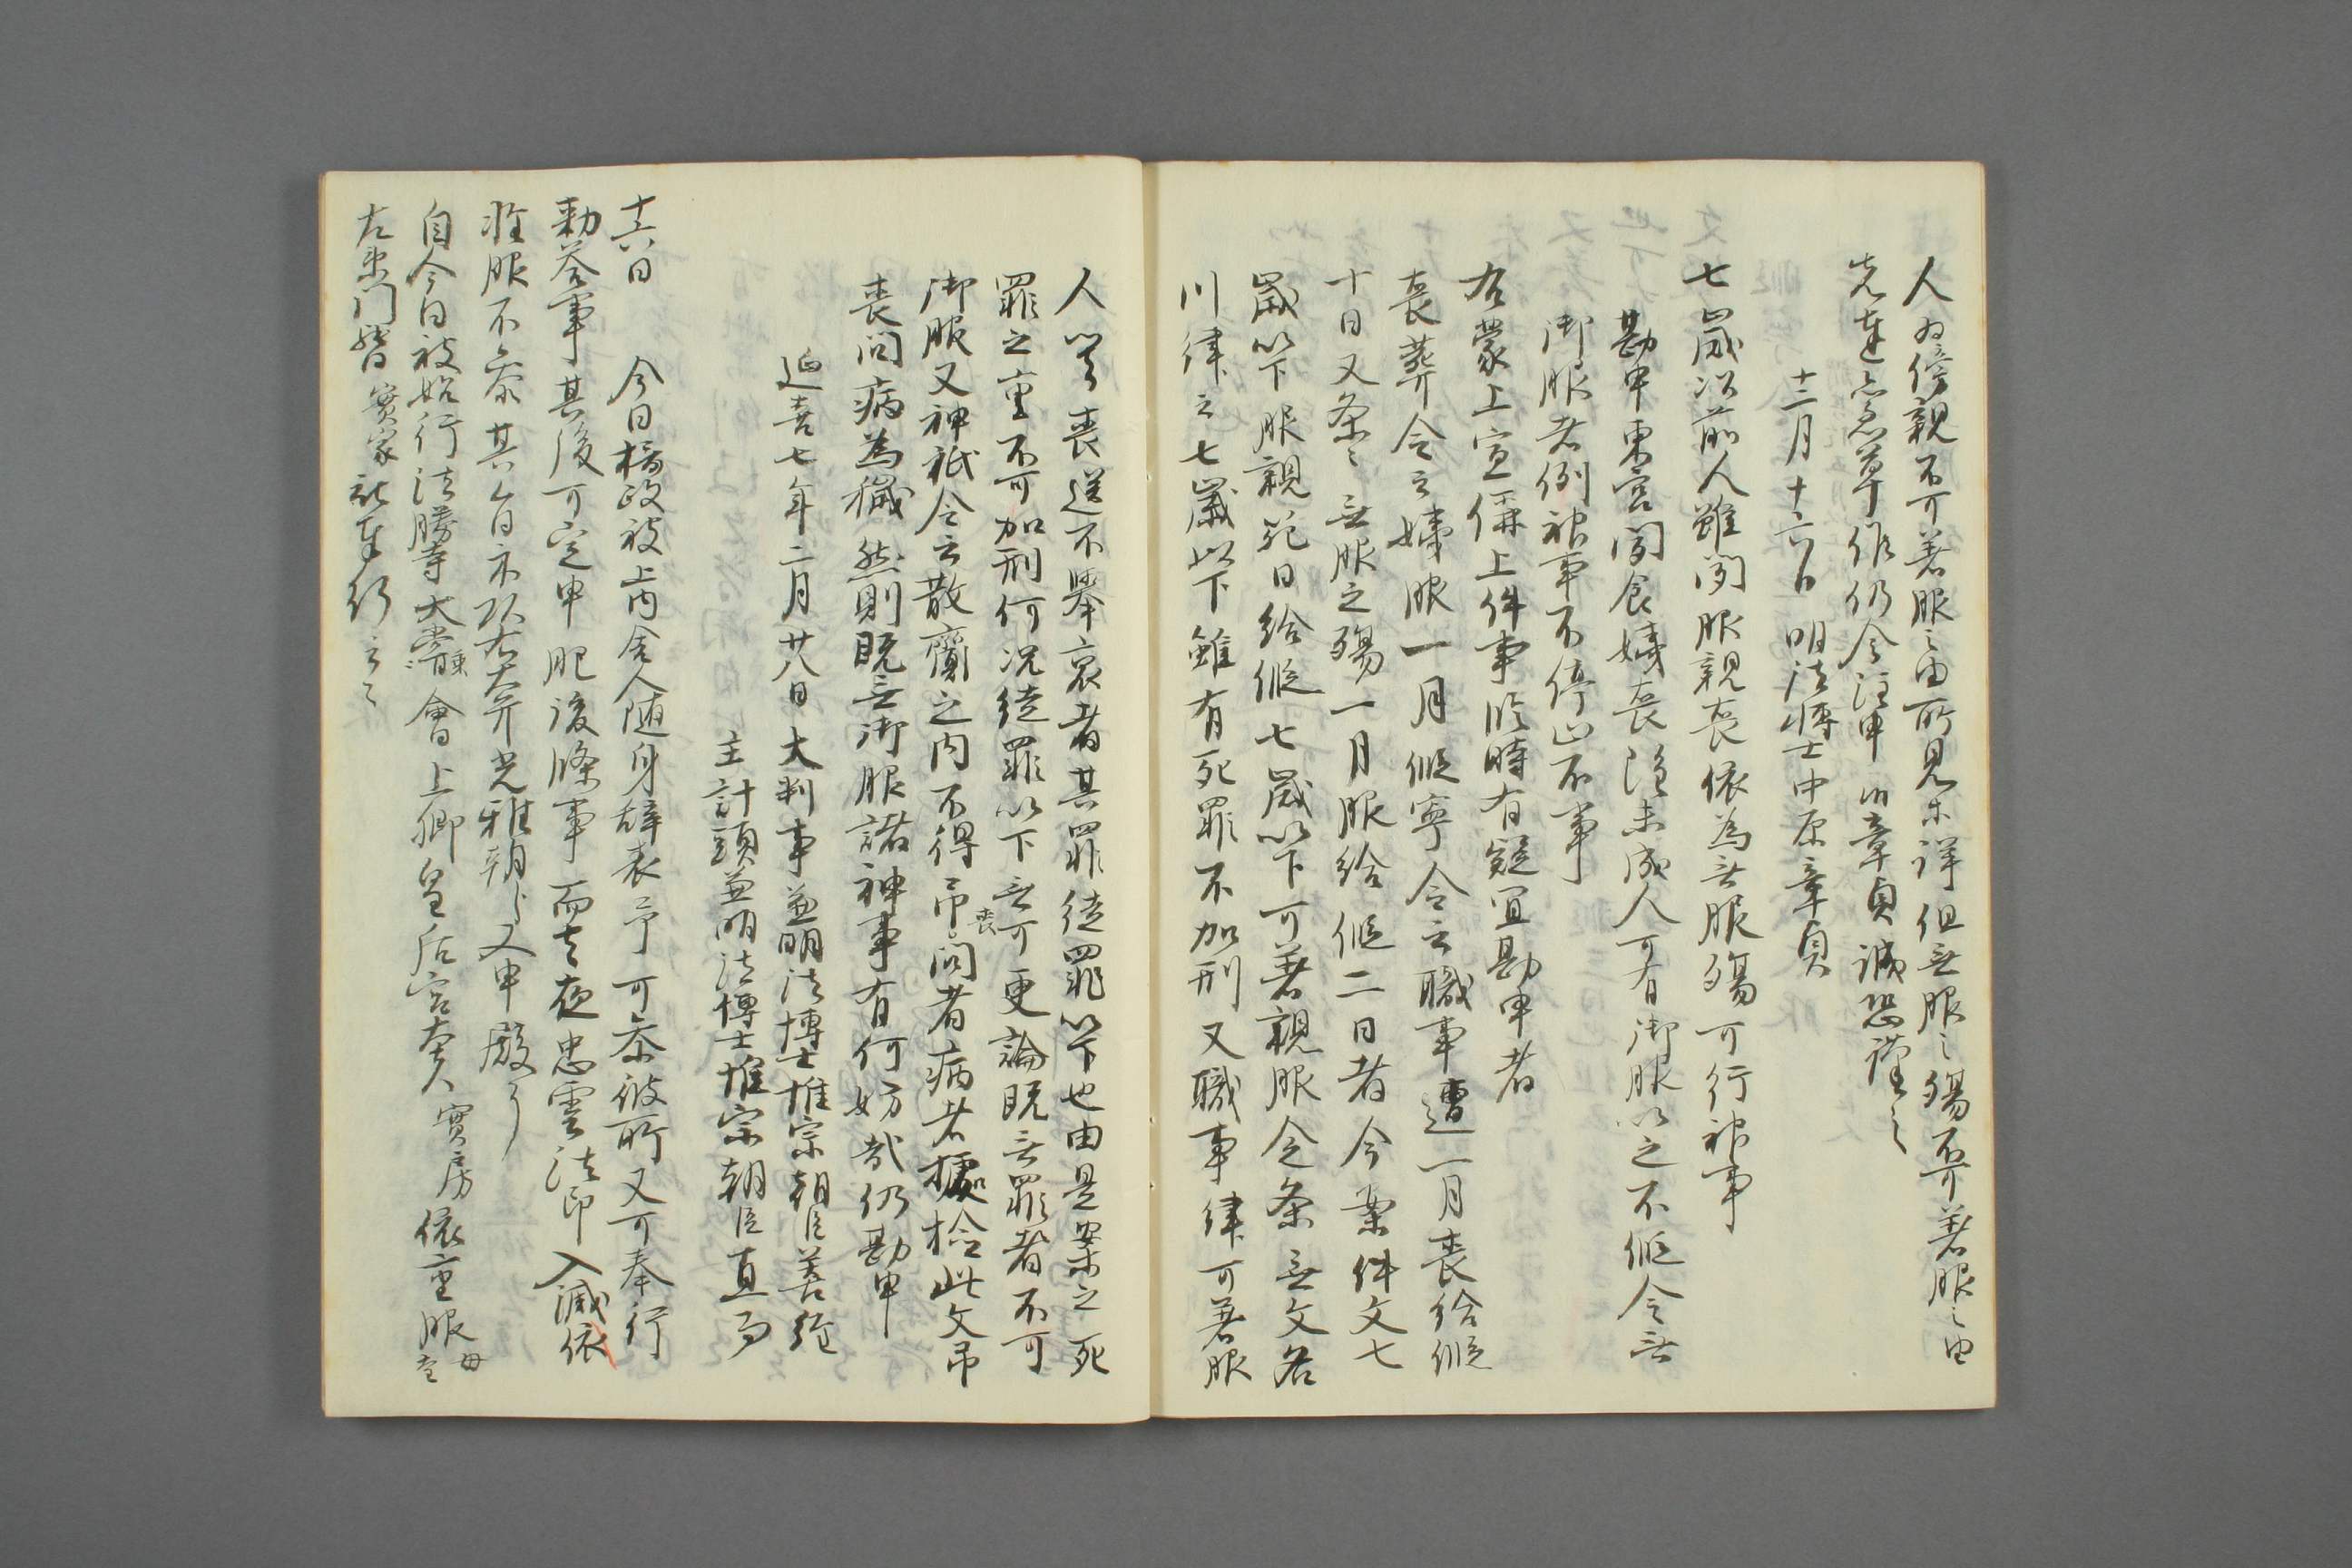 人為傍親不可著服之由所見不詳但無服之殤不可著服之由
先達急草作仍今注申以章貞誠恐謹之
十二月十六日 明法博士中原章貞
七歳以前人雖聞服親喪依為無服殤可行神事
勘申東宮聞食姨喪随未成人可有御服以之不仮令無
御服者例神事不停止否事
右蒙上宣偁上件事臨時有疑宜勘申者
喪葬令云姨服一月仮寧令云職事遭一月喪給仮
十日又条云無服之殤一月服給仮二日者今案件文七
歳以下服親死日給仮七歳以下可著親服令条無文名
川律云七歳以下雖有死罪不加刑又職事律可著服
人聞喪匿不挙哀者其罪徒罪以下也由是案之死
罪之重不可加刑何況徒罪以下無可更論既無罪者不可
御服又神祇令云散齋之内不得弔喪問者病者據検此文弔
喪問病為穢然則既無御服諸神事有何妨哉仍勘申
延喜七年二月廿八日 大判事兼明法博士惟宗朝臣善経
主計頭兼明法博士惟宗朝臣直本
十六日 今日摂政被上内舎人随身辞表予可参彼所又可奉行
勅答事其後可定申肥後條事而去夜忠雲法印入滅依
軽服不参其旨示頭右大弁光雅朝臣又申殿了
自今日被始行法勝寺大乗会上卿皇后宮大夫實房依重服母
左衛門督實家被奉行云々